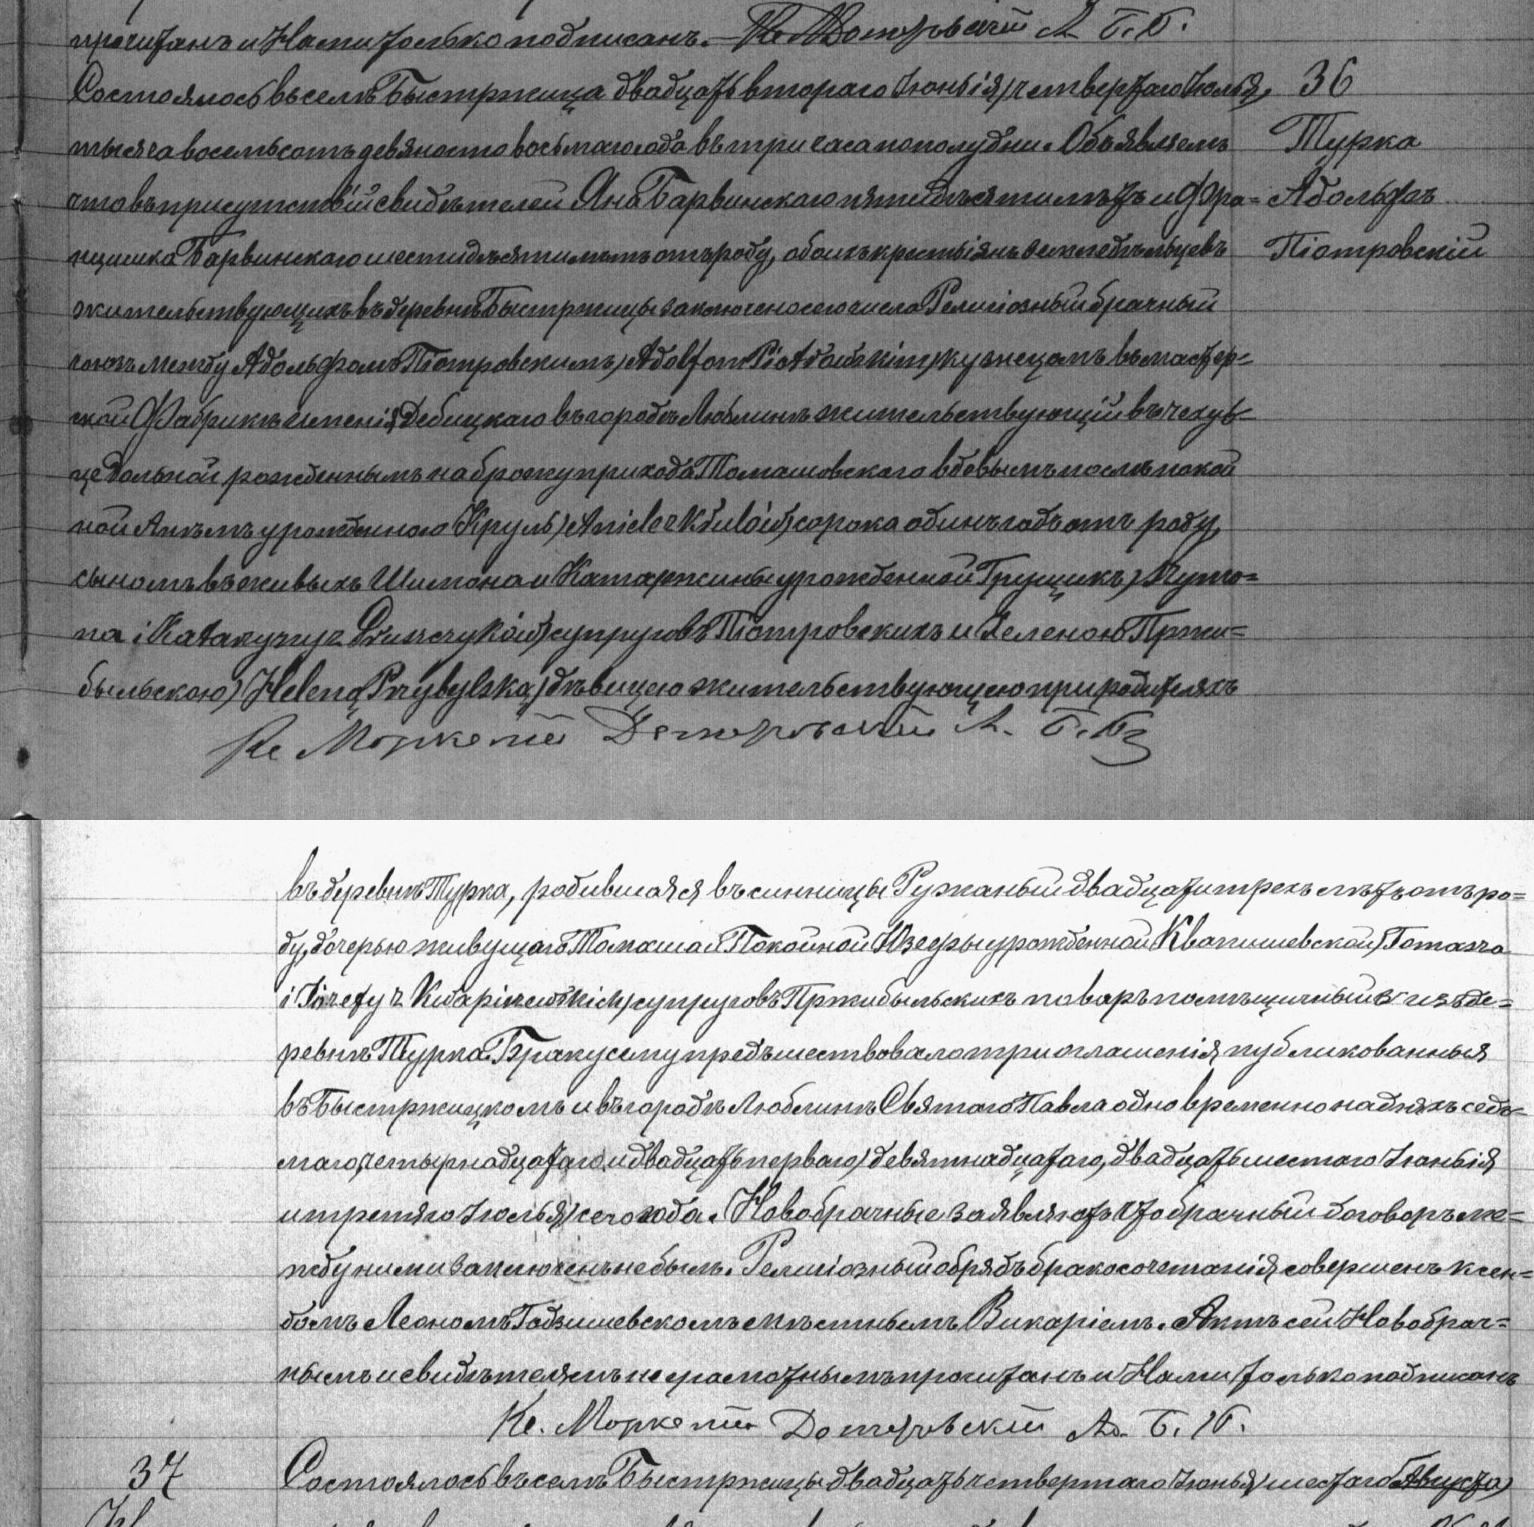 прочитанъ и Нами только подписанъ.
Состоялось въ селѣ Быстржица двадцать второго Іюнія (четвертаго Іюля) 36
тысяча восемьсотъ девяносто восьмаго года въ три часа пополудни. Объявляемъ Турка
что въ присутствій свидѣтелей Яна Барвинскаго пятидѣсяти лѣтъ и Фра= Адольфъ
нцишка Барвинскаго шестидѣсяти лѣтъ отъ роду, обоихъ крестіянъ земледѣльцевъ Піотровскій
жительствующихъ въ деревнѣ Быстржицы заключено сего числа Религіозный брачный
союзъ между Адольфомъ Піотровскимъ (Adolfom Piotrowskim) кузнецомъ въ мастер=
ской Фабрикѣ имѣнія Дебицкаго въ городѣ Люблинѣ жительствующій въ чехув=
це дольной рожденнымъ на прихода Томашовскаго вдовымъ послѣ покой
ной Анелѣ урожденного Круль сорока одинъ годъ отъ роду,
сыномъ въ живыхъ Шимона и Катаржины урожденной Грущикъ
на i супруговъ Піотровскихъ и Геленою Пржи=
быльскою (Heleną Przybylską) дѣвицею жительствующею при родителяхъ
Кс. А. Б. П.
въ деревнѣ Турка, родившаяся въ синницы Ружаный двадцати трехъ лѣтъ отъ ро=
ду, дочерью живущаго Томаша и Покойной Юзефы урожденной Квапишевской (Tomasza
i Józefy z супруговъ Пржибыльскихъ поваръ помѣщичный изъ де=
ревнѣ Турка. Браку сему предшествовало три оглашенія, публикованныя
въ Быстржицкомъ и въ городѣ Люблинѣ Святаго Павла одновременно на дняхъ седь=
маго, четырнадцатаго и двадцать перваго (девятнадцатаго, двадцать шестаго Іюнія
и третяго Іюлья) сего года. Новобрачные заявляютъ что брачный договоръ ме=
жду ними заключенъ не былъ. Религіозный обрядъ бракосочетанія совершенъ ксен=
домъ Леономъ Годзишевскомъ мѣстнымъ Викаріемъ. Актъ сей Новобрач=
нымъ и свидѣтелямъ неграмотнымъ прочитанъ и Нами только подписанъ
Кс. А. Б. П.
37 Состоялось въ селѣ Быстржицы двадцать четвертаго Іюнья (шестаго Августа)